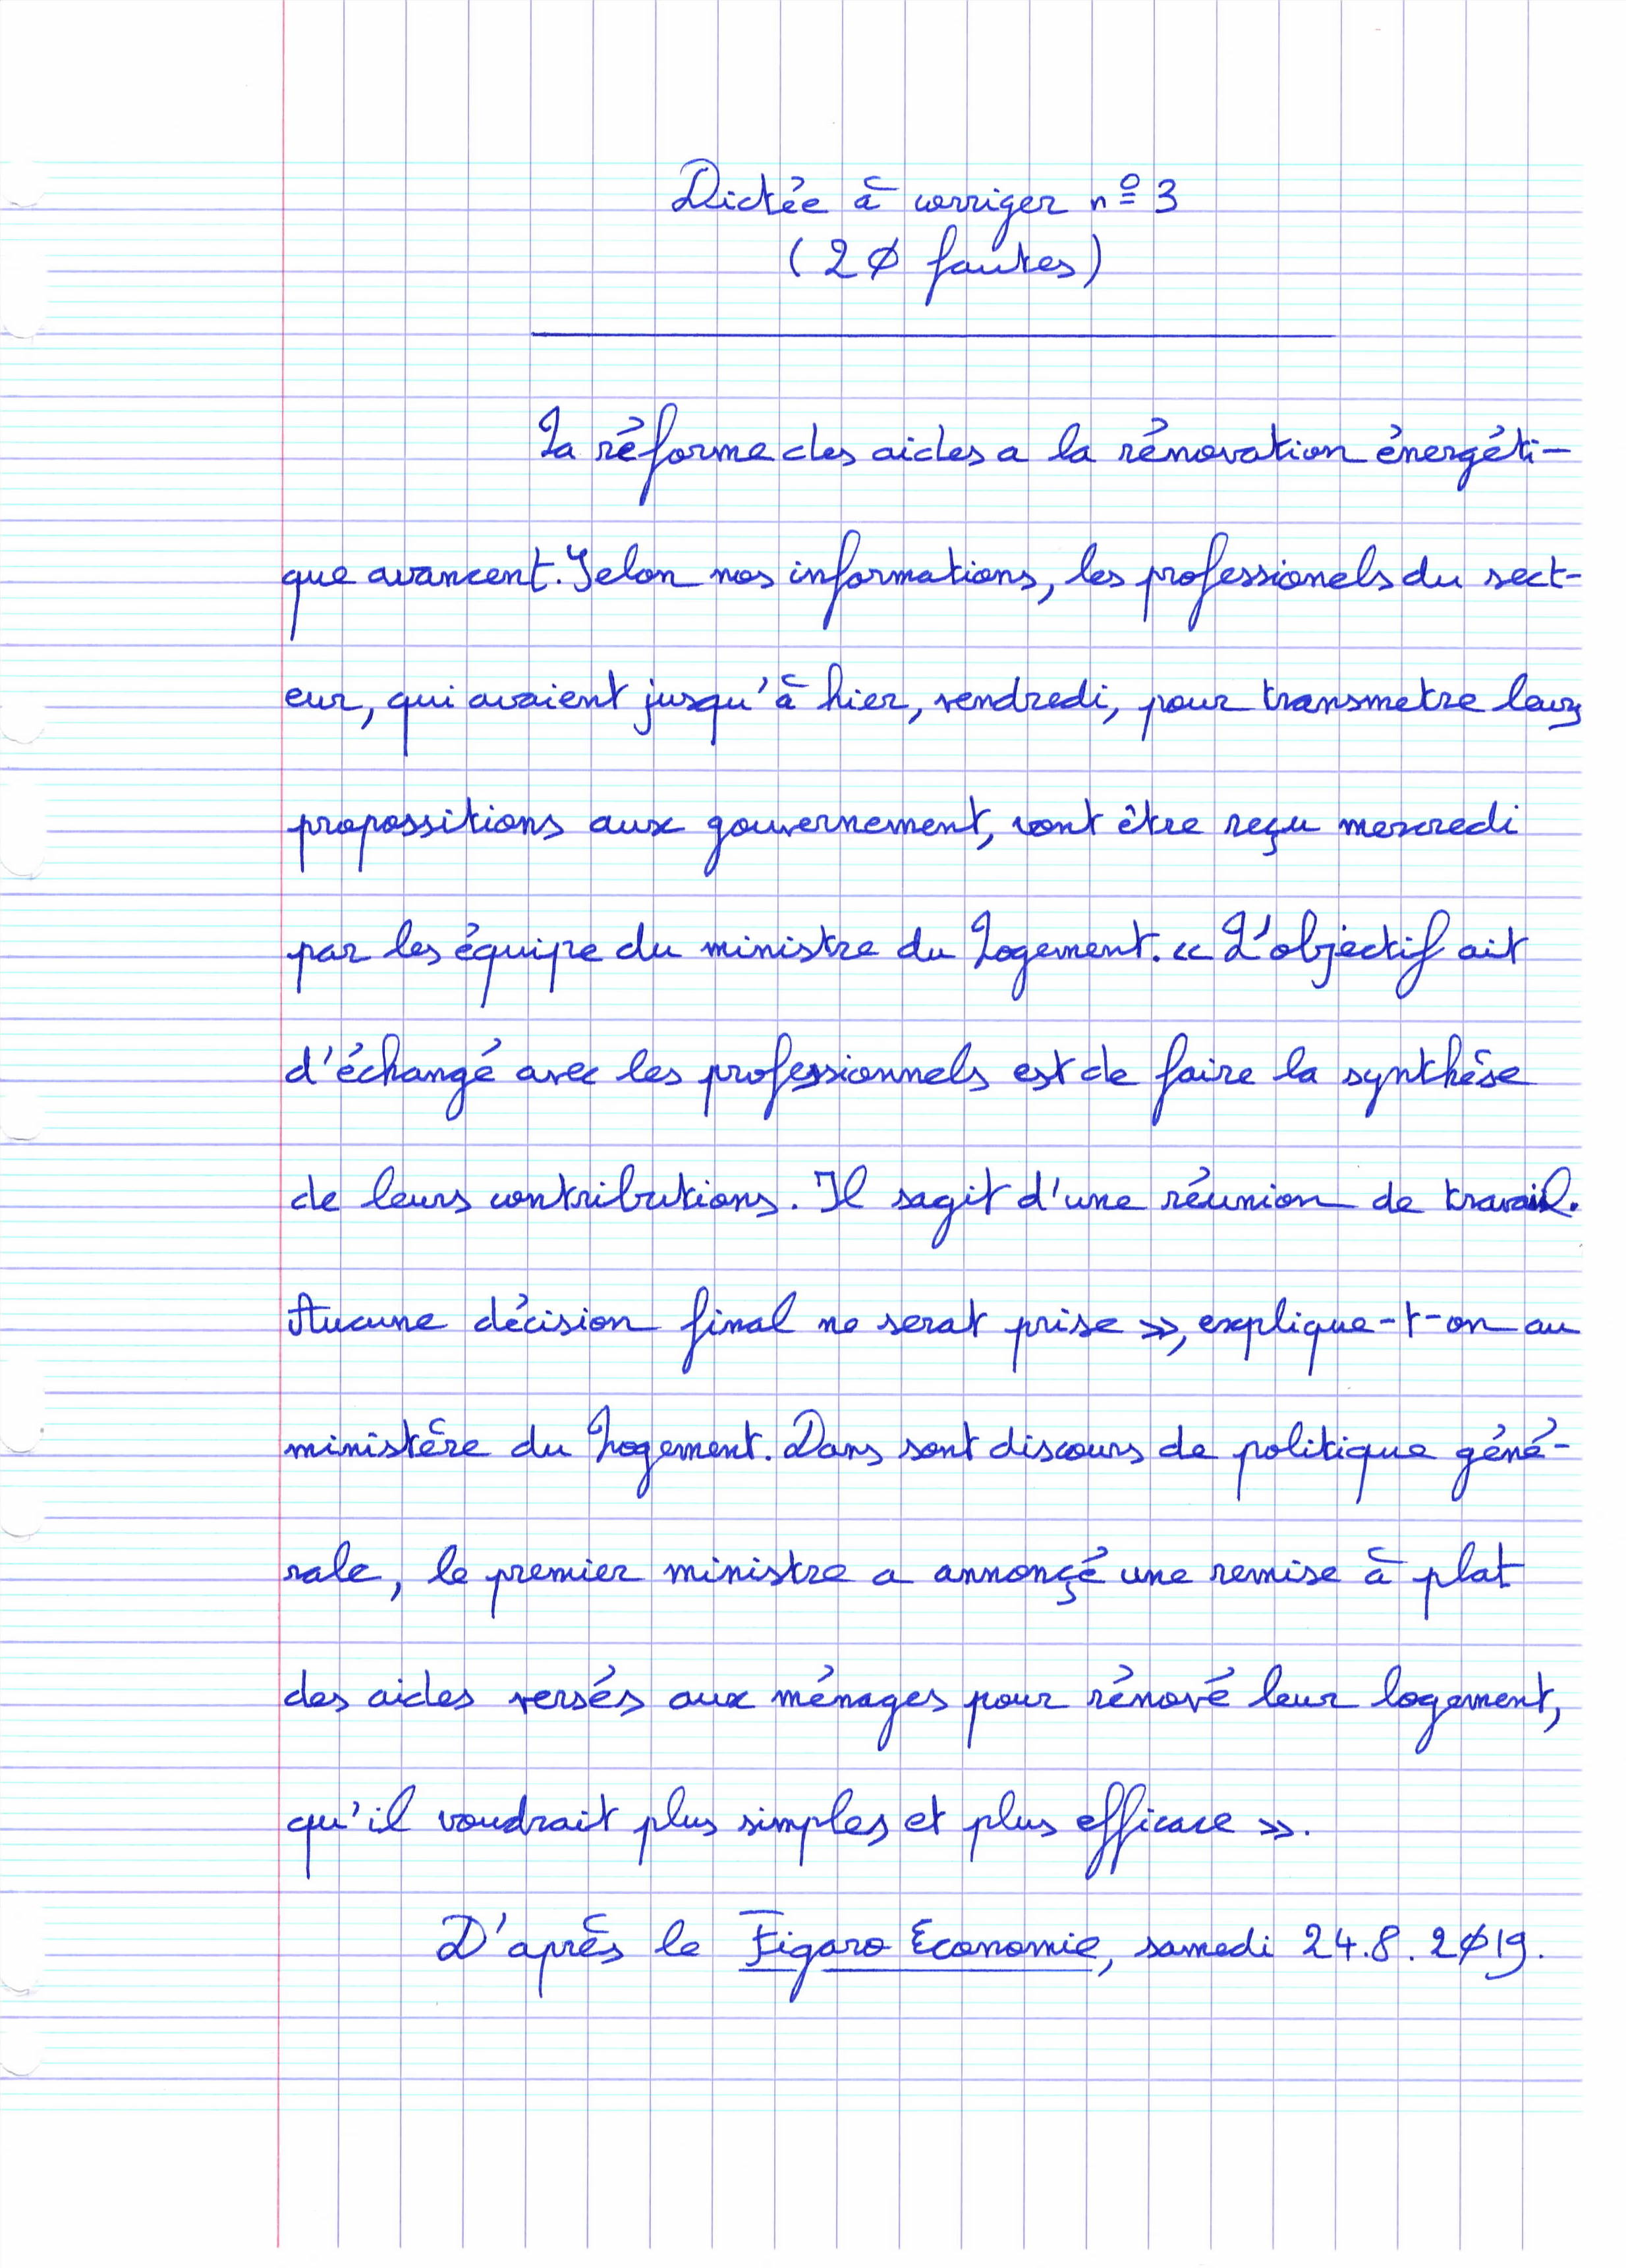 Dictée à corriger nº 3
(20 fautes)
La réforme des aides a la rénovation énergéti-
que avancent. Selon nos informations, les professionels du sect-
eur, qui avaient jusqu'à hier, vendredi, pour transmetre leurs
propossitions aux gouvernement, vont être reçu mercredi
par les équipe du ministre du Logement. « L'objectif ait
d'échangé avec les professionnels est de faire la synthèse
de leurs contributions. Il sagit d'une réunion de travail.
Aucune décision final ne serat prise », explique-t-on au
ministère du Logement. Dans sont discours de politique géné-
rale, le premier ministre a annonçé une remise à plat
des aides versés aux ménages pour rénové leur logement,
qu'il voudrait plus simples et plus efficace ».
D'après le Figaro Economie, samedi 24.8.2019.